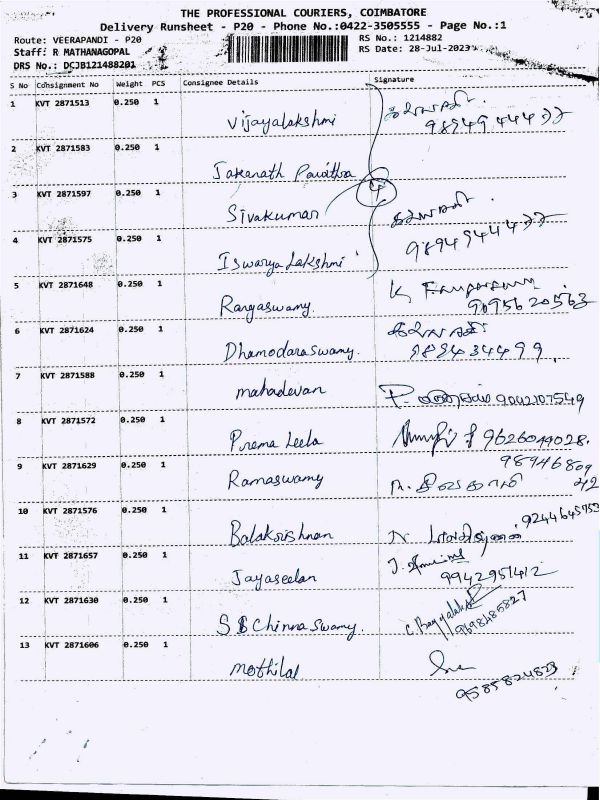 THE PROFESSIONAL COURIERS, COIMBATORE
Delivery Runsheet - P20 - Phone No.:0422-3505555 - Page No.:1
Route: VEERAPANDI - P20 RS No.: 1214882
Staff: R MATHANAGOPAL RS Date: 28-Jul-2023
DRS No.: DCJB121488201
S No Consignment No Weight PCS Consignee Details Signature
1 KVT 2871513 0.250 1 Vijayalakshmi
2 KVT 2871583 0.250 1
3 KVT 2871597 0.250 1 Sivakumar
4 KVT 2871575 0.250 1 Iswarya Lakshmi
5 KVT 2871648 0.250 1 Rangaswamy. 9095620563
6 KVT 2871624 0.250 1 Dhamodaraswamy. 9894034499
7 KVT 2871588 0.250 1 mahadevan 9042107549
8 KVT 2871572 0.250 1 Prema Leela 9626049028.
9 KVT 2871629 0.250 1 Ramaswamy 98946809 42
10 KVT 2871576 0.250 1 Balakrishnan
11 KVT 2871657 0.250 1 Jayaseelan 9942951412
12 KVT 2871630 0.250 1 S B Chinna Swamy. 9698485827
13 KVT 2871606 0.250 1 mothilal 9585824823